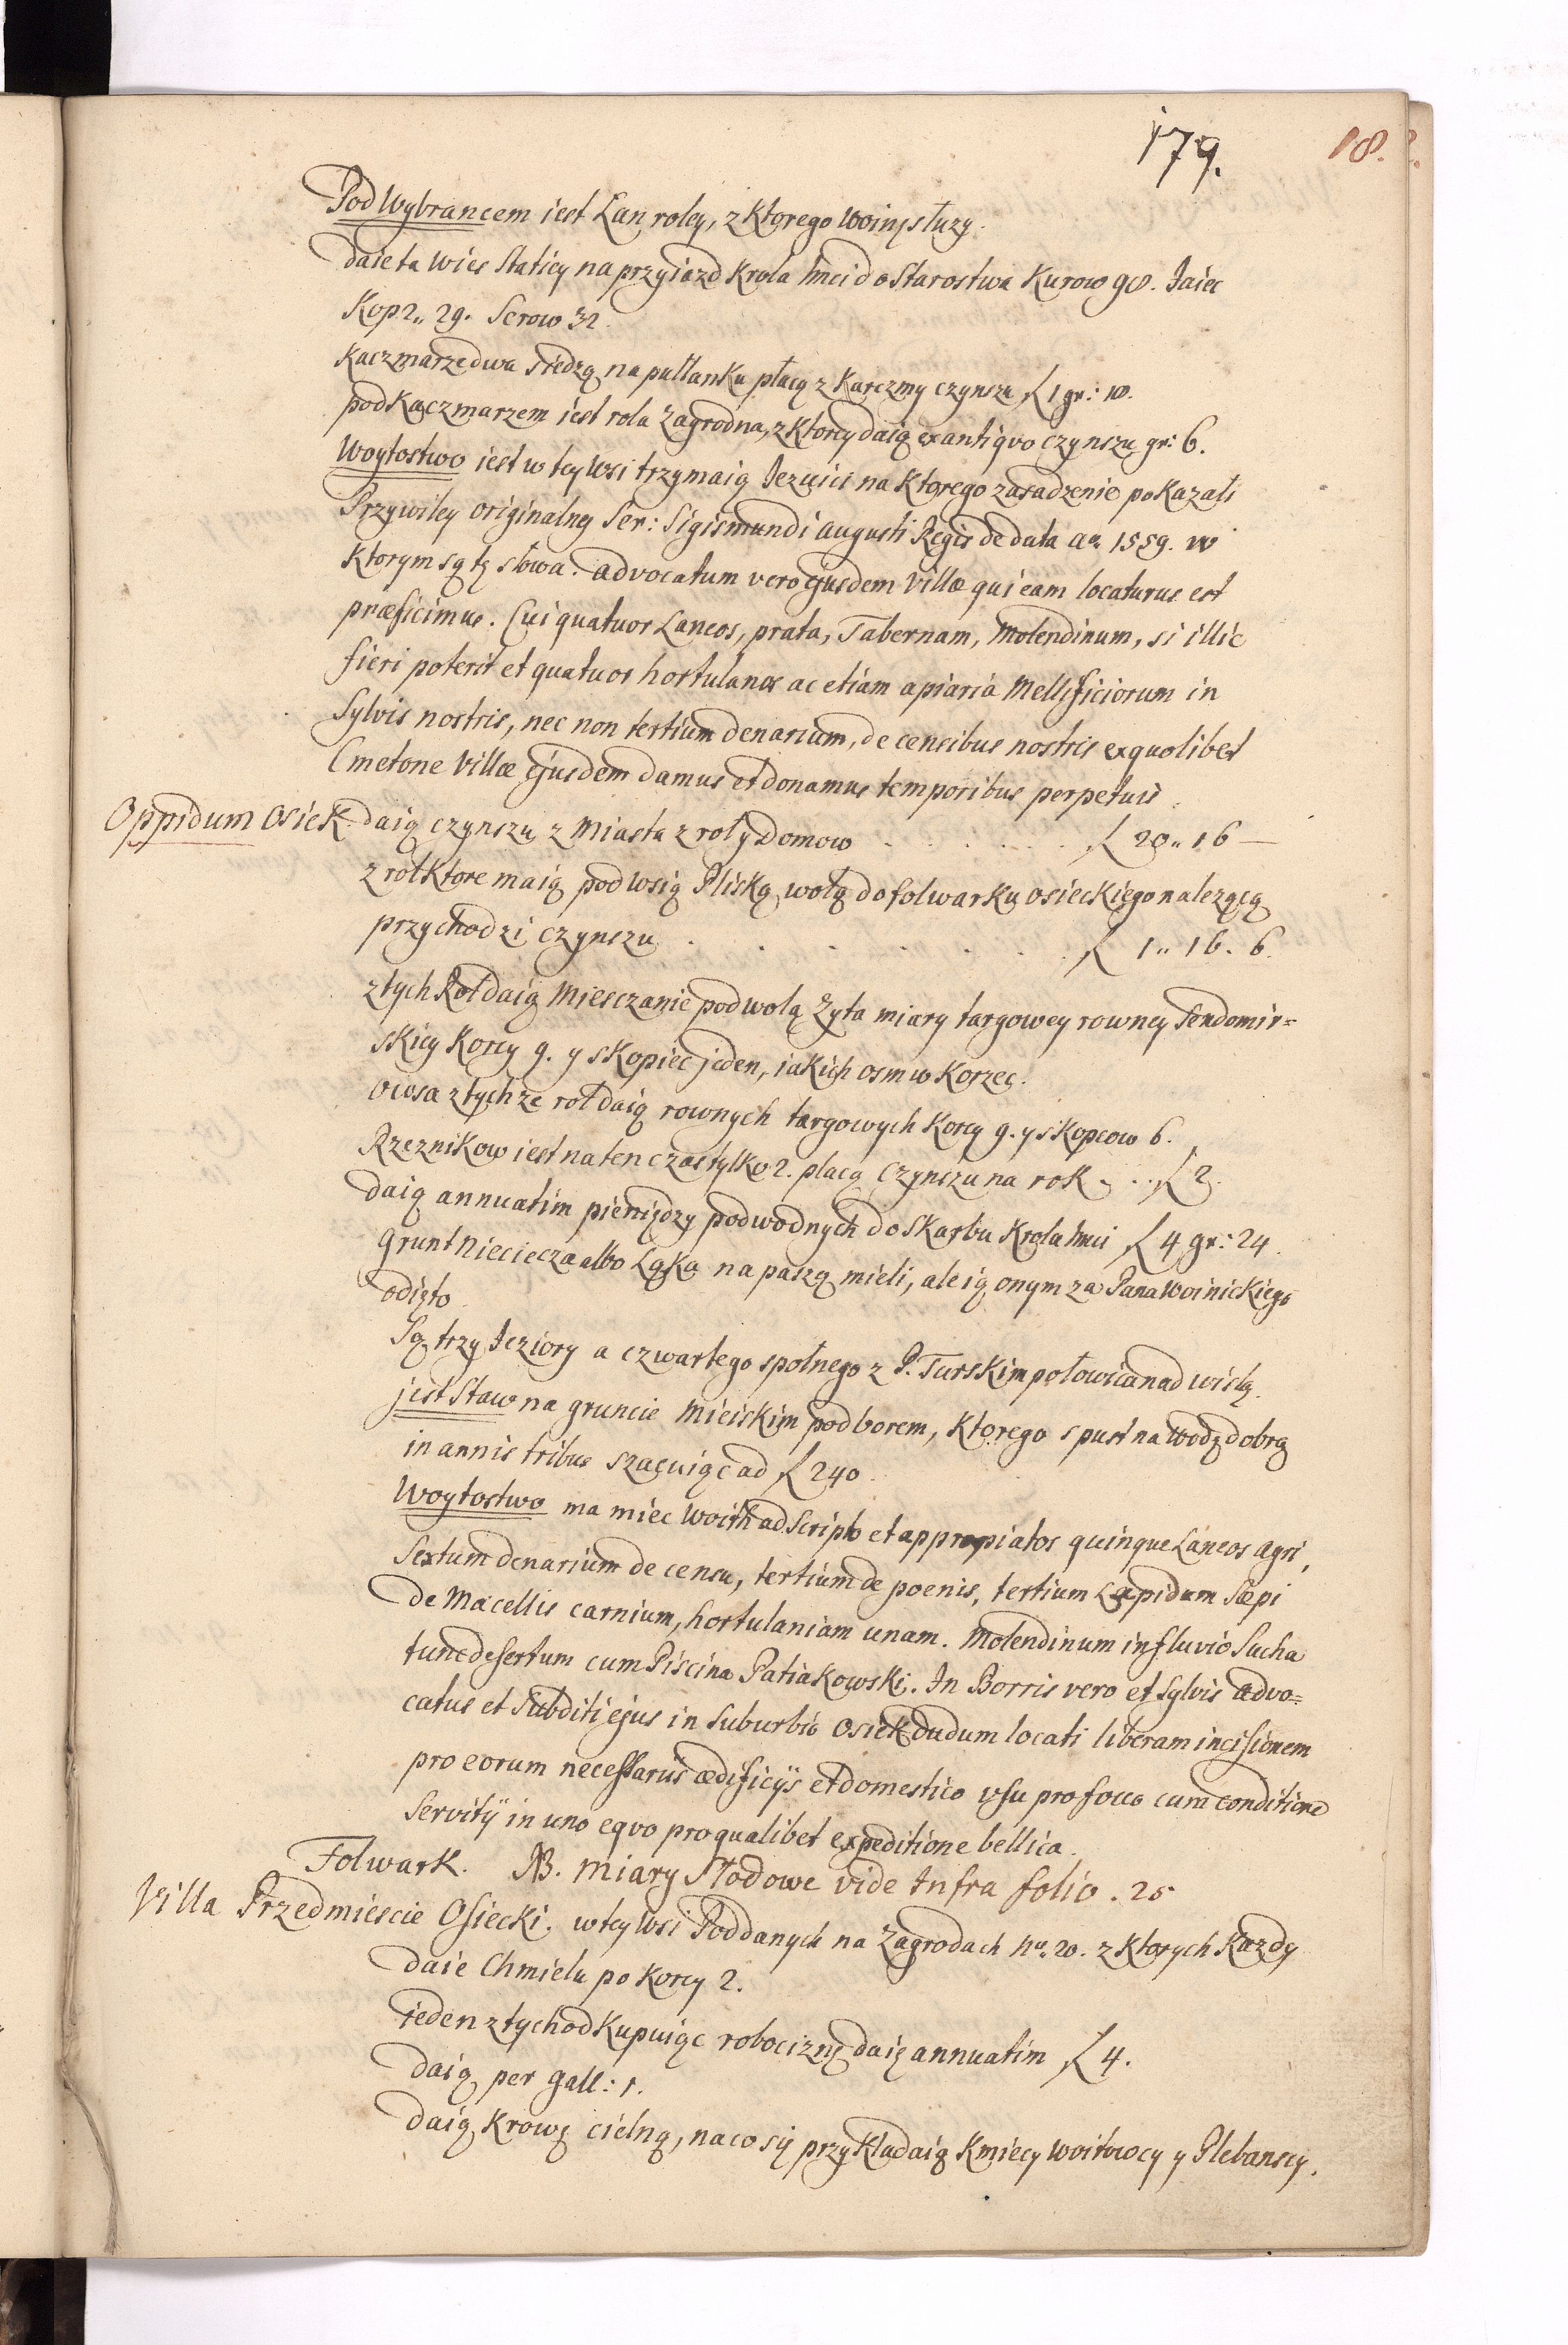 179.
18.
Pod Wybrancem iest Łan roley, z Ktorego Woinę służy.
daie ta Wies Staticy na przyiazd Krola Jmci do Starostwa Kurow 98. Jaiec
Kop 2„ 29. Serow 32.
Kaczmarze dwa siedzą na pułłanku płacą z Karczmy czynszu ƒ 1 gr: 18.
pod Kaczmarzem iest rola Zagrodna, z Ktorey daią ex antiqvo czynszu gr: 6.
Woytostwo iest w tey Wsi trzymaią Jezuici na Ktorego zasadzenie poKazali
Przywiley originalny Ser: Sigismundi Augusti Regis de data Aō 1559. w
Ktorym są tę słowa. Advocatum vero ejusdem Villæ qui eam locaturus est
præficimus. Cui quatuor Laneos, prata, Tabernam, Molendinum, si illic
fieri poterit et quatuor hortulanos ac etiam apiaria Mellificiorum in
Sylvis nostris, nec non tertium denarium, de censibus nostris ex quolibet
Cmetone Villæ ejusdem damus et donamus temporibus perpetuis.
Oppidum Osiek daią czynszu z Miasta z roł y Domow . . . . . . ƒ 20„ 16 —
z roł Ktore maią pod wsią Pliską wolą do folwarku osieckiego nalezącą
przychodzi czynszu . . . . . . ƒ 1„ 16. 6.
z tych Roł daią Miesczanie pod wolą Zyta miary targowey rowney Sendomir=
skiey Korcy 9. y sKopiec jeden, iakich osm w Korzec.
Owsa z tychze roł daią rownych targowych Korcy 9. y sKopcow 6.
Rzeznikow iest na ten czas tylko 2. płacą czynszu na rok . . . ƒ 2.
daią annuatim pieniędzy podwodnych do Skarbu Krola Jmci ƒ 4 gr: 24.
Grunt Niecieczа albo Łąkę na paszą mieli, ale ią onym za Pana Woinickiego
odięto.
Są trzy Jeziory a czwartego społnego z P. Turskim połowica nad wisłą.
jest Staw na gruncie Mieiskim pod borem, Ktorego spust na Wodę dobrą
in annis tribus szacuiąc ad ƒ 240.
Woytostwo ma miec Woith adscripto et appropiatos quinque Laneos Agri,
Sextum denarium de censu, tertium de poenis, tertium Lapidum Sæpi
de Macellis carnium, hortulaniam unam. Molendinum in fluvio Sucha
tunc desertum cum Piscina Patiakowski. In Borris vero et Sylvis Advo=
catus et Subditi ejus in Suburbio Osiek dudum locati liberam incisionem
pro eorum necessariis ædificijs et domestico vsu pro focco cum conditione
Servitij in uno eqvo pro qualibet expeditione bellica.
Folwark. NB. Miary Słodowe vide Infra folio. 25
Villa Przedmiescie Osiecki. w tey Wsi Poddanych na Zagrodach Nu. 20. z Ktorych Kazdy
daie Chmielu po Korcy 2.
ieden z tych odKupuiąc robociznę daię annuatim ƒ 4.
daią per Gall: 1.
daią Krowę cielną, na co się przyKładaią Kmiecy Woitowcy y Plebanscy.